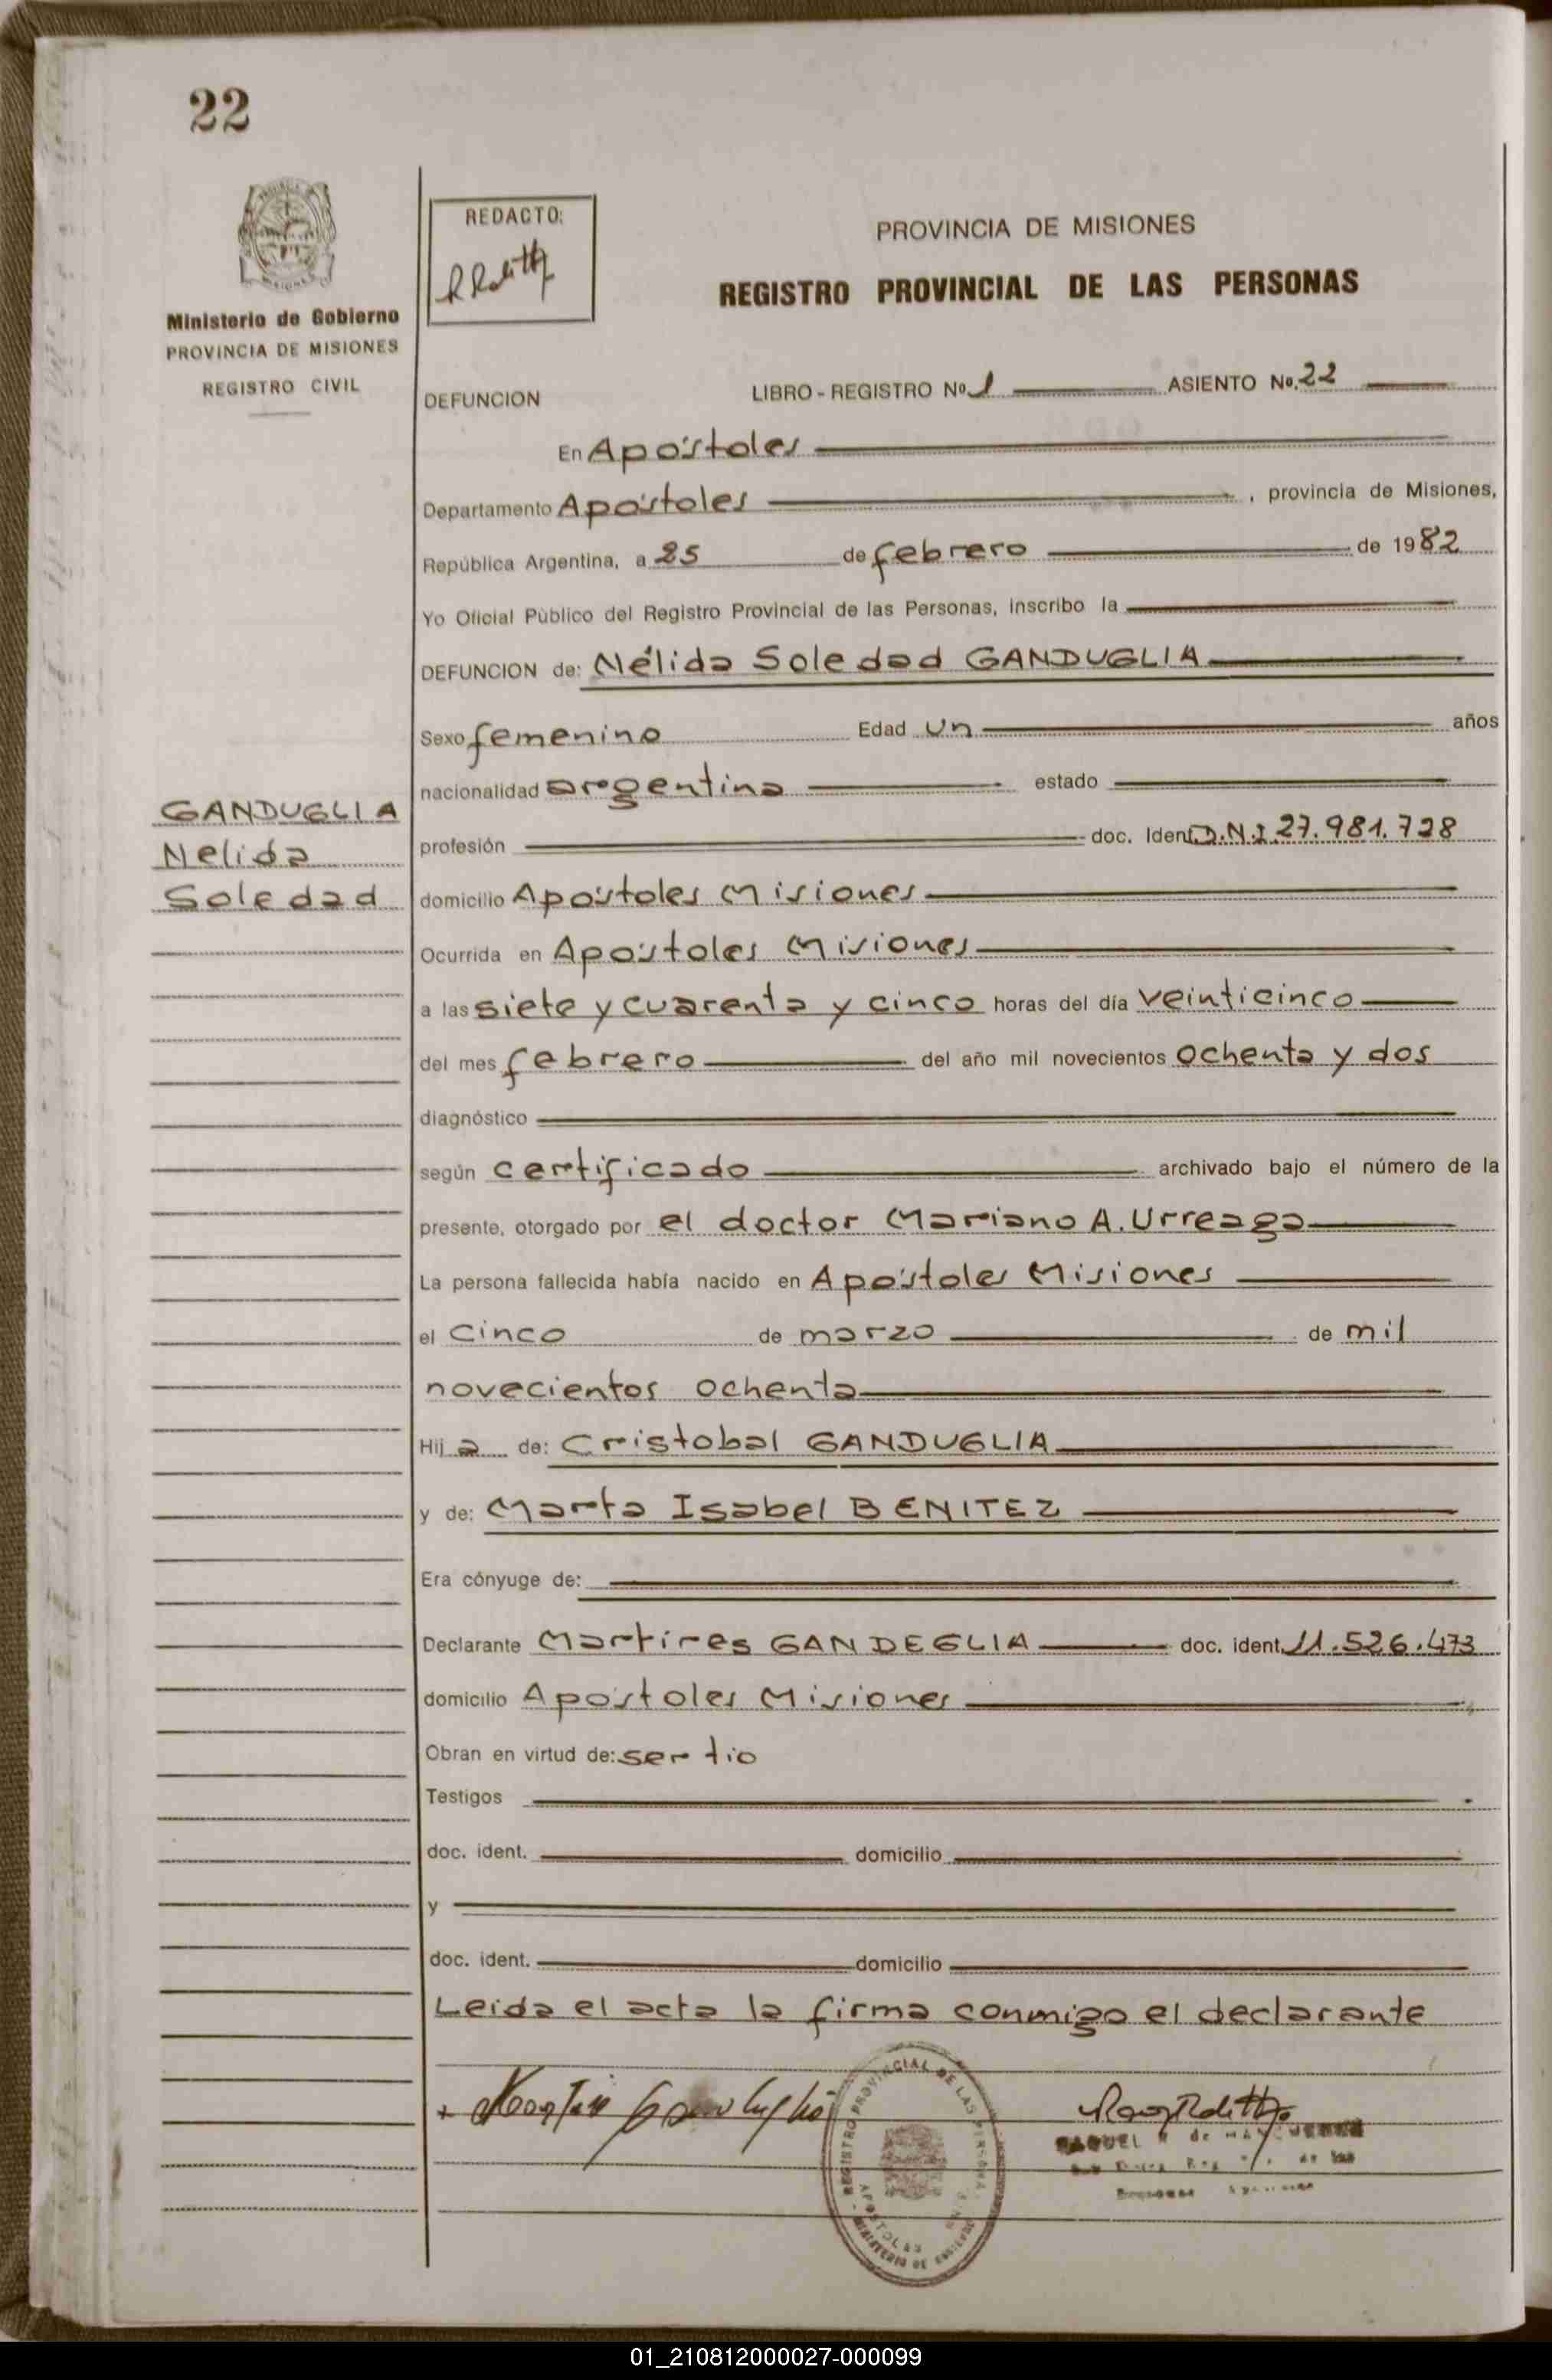 22
Ministerio de Gobierno
PROVINCIA DE MISIONES
REGISTRO CIVIL
REDACTO:
PROVINCIA DE MISIONES
REGISTRO PROVINCIAL DE LAS PERSONAS
DEFUNCION LIBRO - REGISTRO Nº 1 ASIENTO Nº. 22
En Apóstoles
Departamento Apóstoles , provincia de Misiones,
República Argentina, a 25 de febrero de 1982
Yo Oficial Público del Registro Provincial de las Personas, inscribo la
DEFUNCION de: Nélida Soledad GANDUGLIA
Sexo femenino Edad Un años
nacionalidad argentina estado
GANDUGLIA
Nelida
Soledad
profesión doc. Ident D.N.I. 27.981.728
domicilio Apóstoles Misiones
Ocurrida en Apóstoles Misiones
a las siete y cuarenta y cinco horas del día veinticinco
del mes febrero del año mil novecientos ochenta y dos
diagnóstico
según certificado archivado bajo el número de la
presente, otorgado por el doctor Mariano A. Urreaga
La persona fallecida había nacido en Apóstoles Misiones
el cinco de marzo de mil
novecientos ochenta
Hija de: Cristobal GANDUGLIA
y de: Marta Isabel BENITEZ
Era cónyuge de:
Declarante Martires GANDEGLIA doc. ident. 11.526.473
domicilio Apóstoles Misiones
Obran en virtud de: ser tio
Testigos
doc. ident. domicilio
y
doc. ident. domicilio
Leida el acta la firma conmigo el declarante
REGISTRO PROVINCIAL DE LAS PERSONAS
APOSTOLES
MINISTERIO DE GOBIERNO
RAQUEL R de
01_210812000027-000099